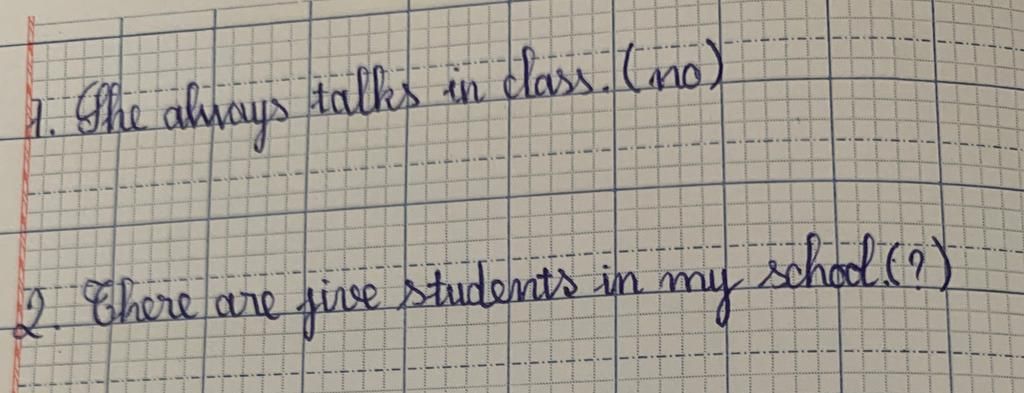 1. She always talks in class. (no)
2. There are five students in my school. (?)